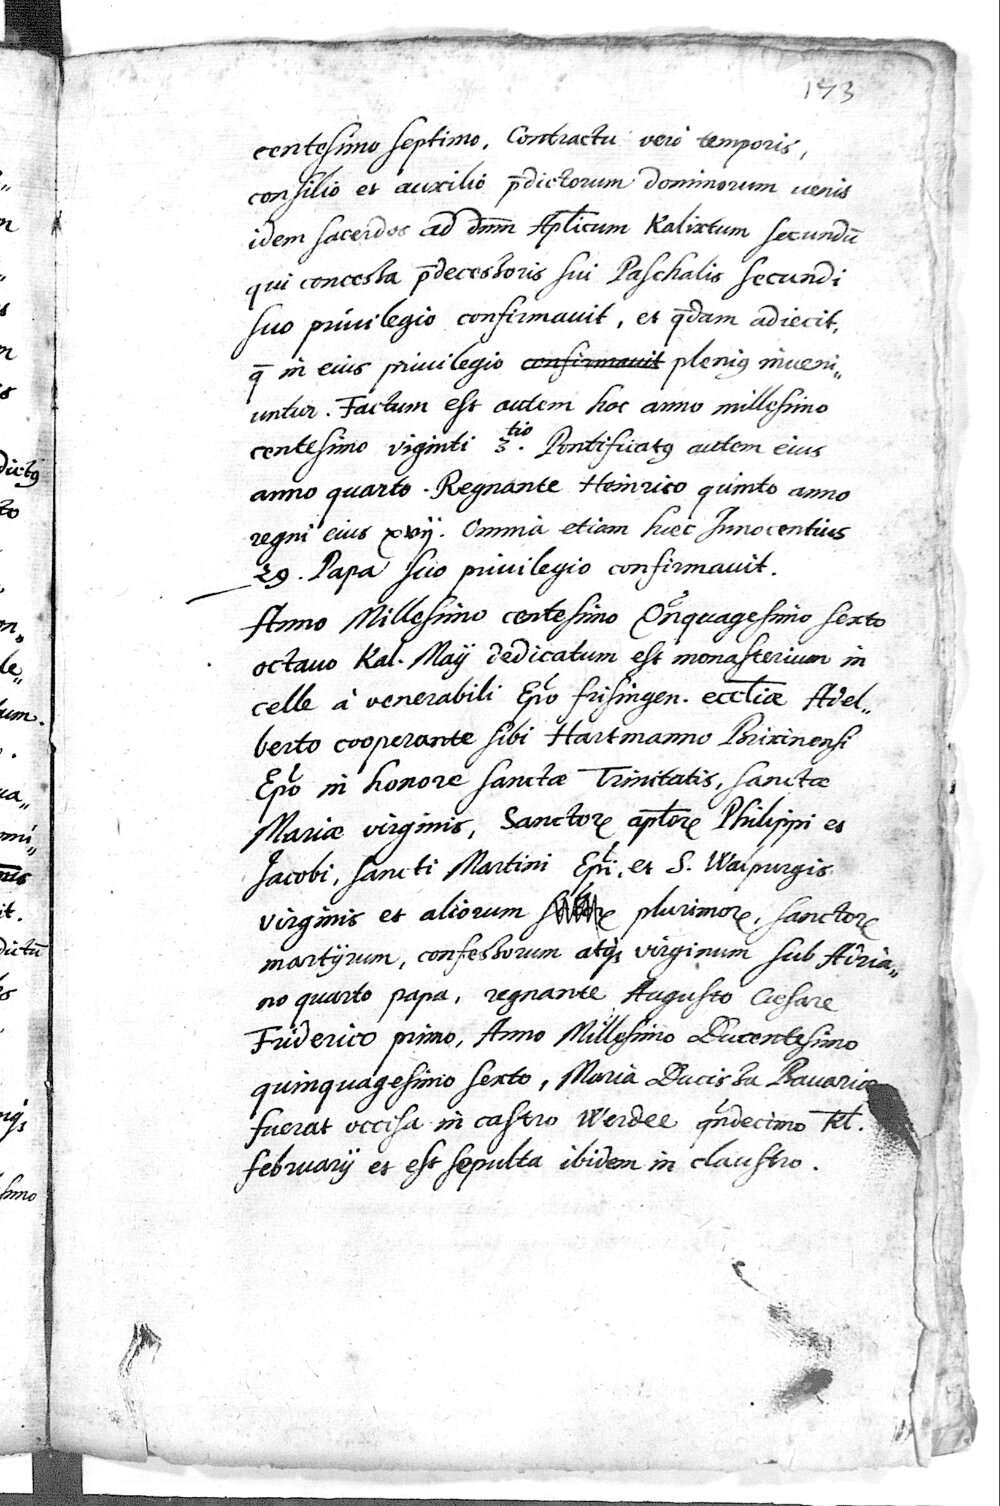 173
centesimo septimo. Contractu vero temporis,
consilio et auxilio p̄dictorum dominorum uenis
idem sacerdos ad dn̄m Apl̄icum Kalixtum secundū
qui concessa p̄decessoris sui Paschalis secundi
suo priuilegio confirmauit, et q̄dam adiecit,
q̄ in eius priuilegio confirmauit pleniꝯ inueni„
untur. Factum est autem hoc anno millesimo
centesimo viginti 3.tio Pontificatꝯ autem eius
anno quarto. Regnante Heinrico quinto anno
regni eius xvij. Omnia etiam haec Innocentius
2ꝯ. Papa suo priuilegio confirmauit.
Anno Millesimo centesimo Qnquagesimo sexto
octauo Kal. Maÿ dedicatum est monasterium in
celle à venerabili Ep̄o frisingen. eccl̄iæ Adel„
berto cooperante sibi Hartmanno Brixinensi
Ep̄o in honore sanctæ Trinitatis, sanctæ
Mariæ virginis, Sanctorꝝ apl̄orꝝ Philippi et
Jacobi, sancti Martini Ep̄i, et S. Walpurgis
virginis et aliorum plurimorꝝ, sanctorꝝ
martÿrum, confessorum atqꝫ virginum sub Adria„
no quarto papa, regnante Augusto Cæsare
Friderico primo, Anno Millesimo Ducentesimo
quinquagesimo sexto, Maria Ducissa Bauariæ
fuerat occisa in castro Werdee qndecimo Kl.
februarij et est sepulta ibidem in claustro.